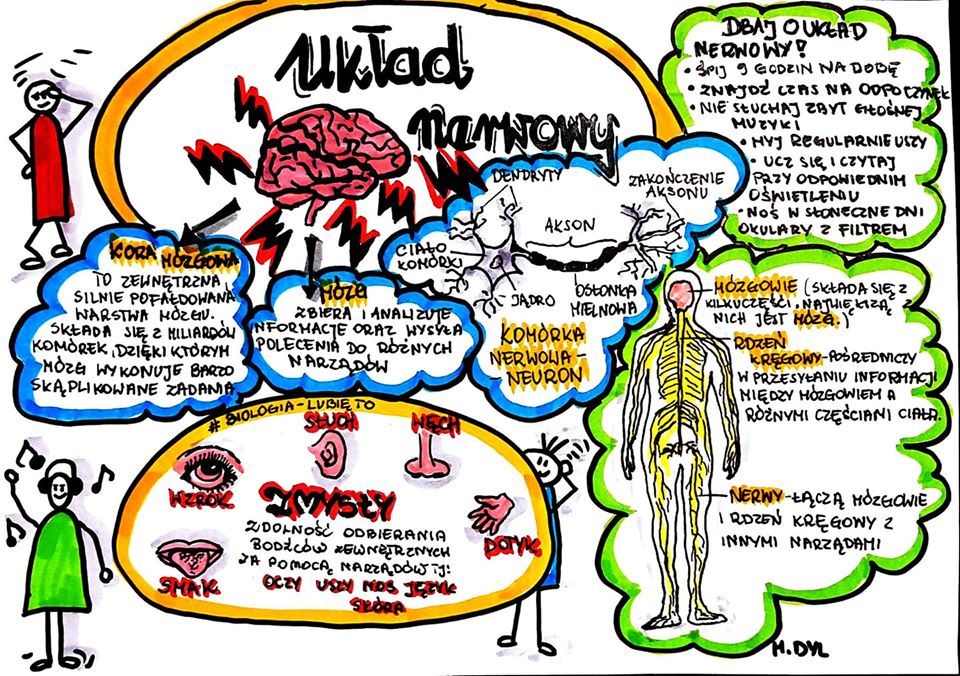 Układ
nerwowy
DBAJ O UKŁAD
NERWOWY!
• ŚPIJ 9 GODZIN NA DOBĘ
• ZNAJDŹ CZAS NA ODPOCZYNEK
• NIE SŁUCHAJ ZBYT GŁOŚNEJ
MUZYKI
• MYJ REGULARNIE USZY
• UCZ SIĘ I CZYTAJ
PRZY ODPOWIEDNIM
OŚWIETLENIU
• NOŚ W SŁONECZNE DNI
OKULARY Z FILTREM
KORA MÓZGOWA
TO ZEWNĘTRZNA,
SILNIE POFAŁDOWANA
WARSTWA MÓZGU.
SKŁADA SIĘ Z MILIARDÓW
KOMÓREK, DZIĘKI KTÓRYM
MÓZG WYKONUJE BARZO
SKĄPLIKOWANE ZADANIA
MÓZG
ZBIERA I ANALIZUJE
INFORMACJE ORAZ WYSYŁA
POLECENIA DO RÓŻNYCH
NARZĄDÓW
DENDRYTY
ZAKOŃCZENIE
AKSONU
AKSON
CIAŁO
KOMÓRKI
JĄDRO
OSŁONKA
MIELNOWA
KOMÓRKA
NERWOWA-
NEURON
MÓZGOWIE (SKŁADA SIĘ Z
KILKU CZĘŚCI, NAJWIĘKSZĄ Z
NICH JEST MÓZG.)
RDZEŃ
KRĘGOWY-POŚREDNICZY
W PRZESYŁANIU INFORMACJI
MIĘDZY MÓZGOWIEM A
RÓŻNYMI CZĘŚCIAMI CIAŁA.
NERWY-ŁĄCZĄ MÓZGOWIE
I RDZEŃ KRĘGOWY Z
INNYMI NARZĄDAMI
# BIOLOGIA-LUBIĘ TO
SŁUCH
WĘCH
WZROK
ZMYSŁY
ZDOLNOŚĆ ODBIERANIA
BODŹCÓW ZEWNĘTRZNYCH
ZA POMOCĄ NARZĄDÓW TJ:
OCZY USZY NOS JĘZYK
SKÓRA
DOTYK
SMAK
M. DYL